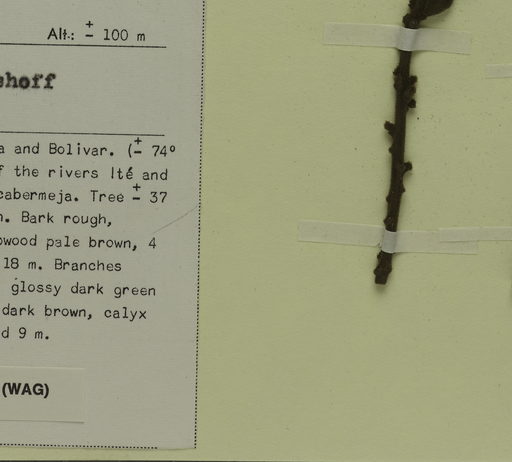 Alt.: ± 100 m
shoff
a and Bolivar. (± 74°
f the rivers Ité and
cabermeja. Tree ± 37
m. Bark rough,
pwood pale brown, 4
18 m. Branches
glossy dark green
dark brown, calyx
d 9 m.
(WAG)